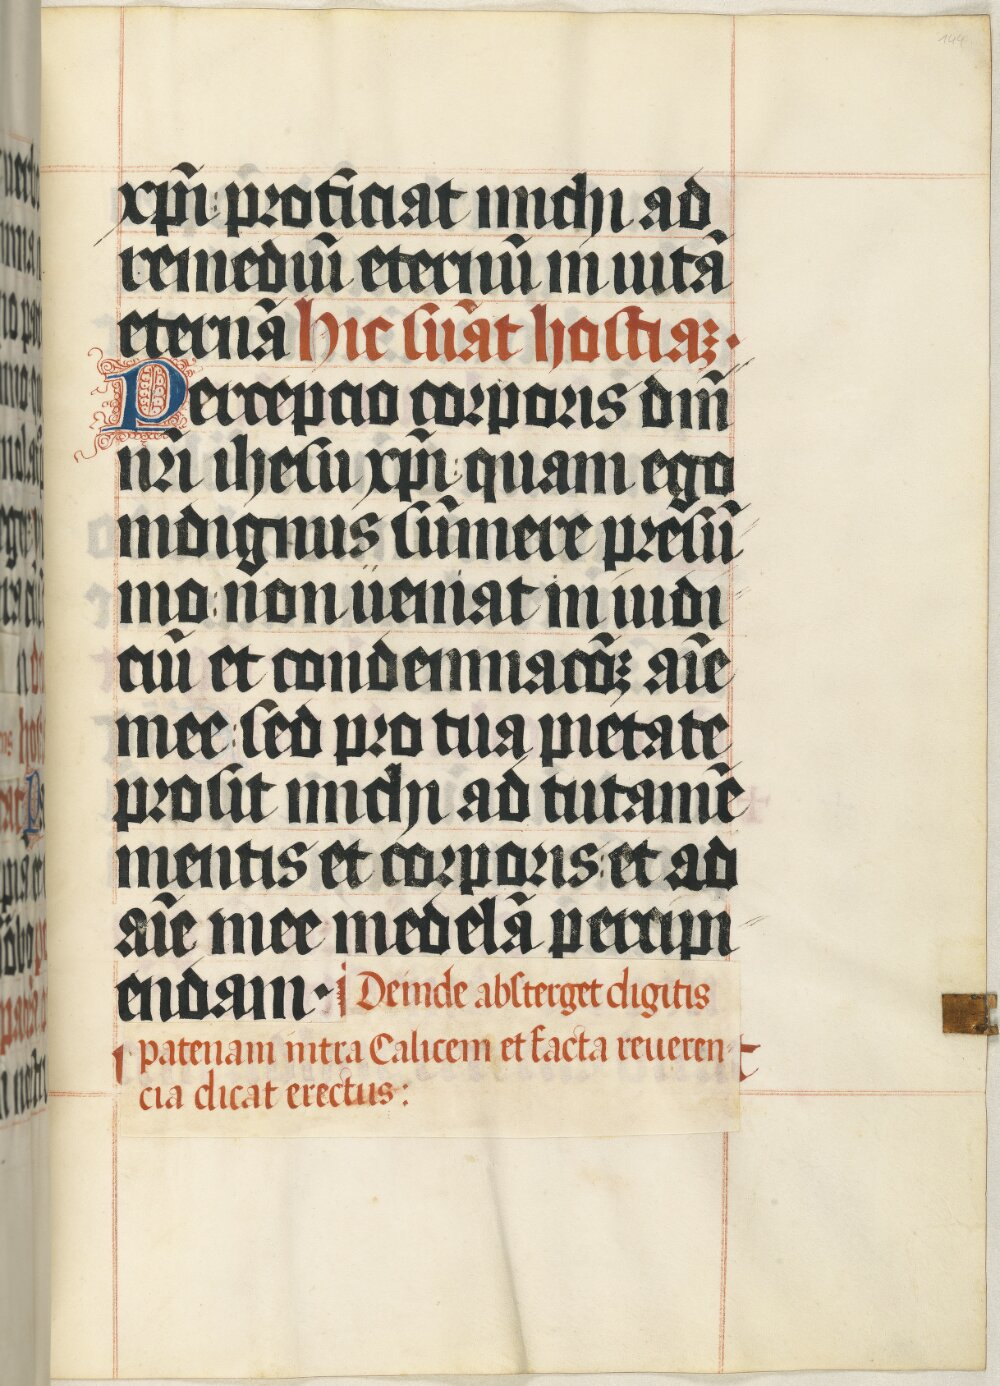 144
xp̄i: proficiat michi ad
remediū eternū in uitā
eternā hic sumāt hostiaꝫ.
Percepcio corporis dn̄i
nr̄i ihesu xp̄i: quam ego
indignus sūmere presū
mo: non ueniat in iudi
ciū et condemnacōꝫ aīe
mee: sed pro tua pietate
prosit michi ad tutamē
mentis et corporis: et ad
aīe mee medelā percipi
endam. Deinde absterget digitis
patenam intra Calicem et facta reueren
cia dicat erectus: